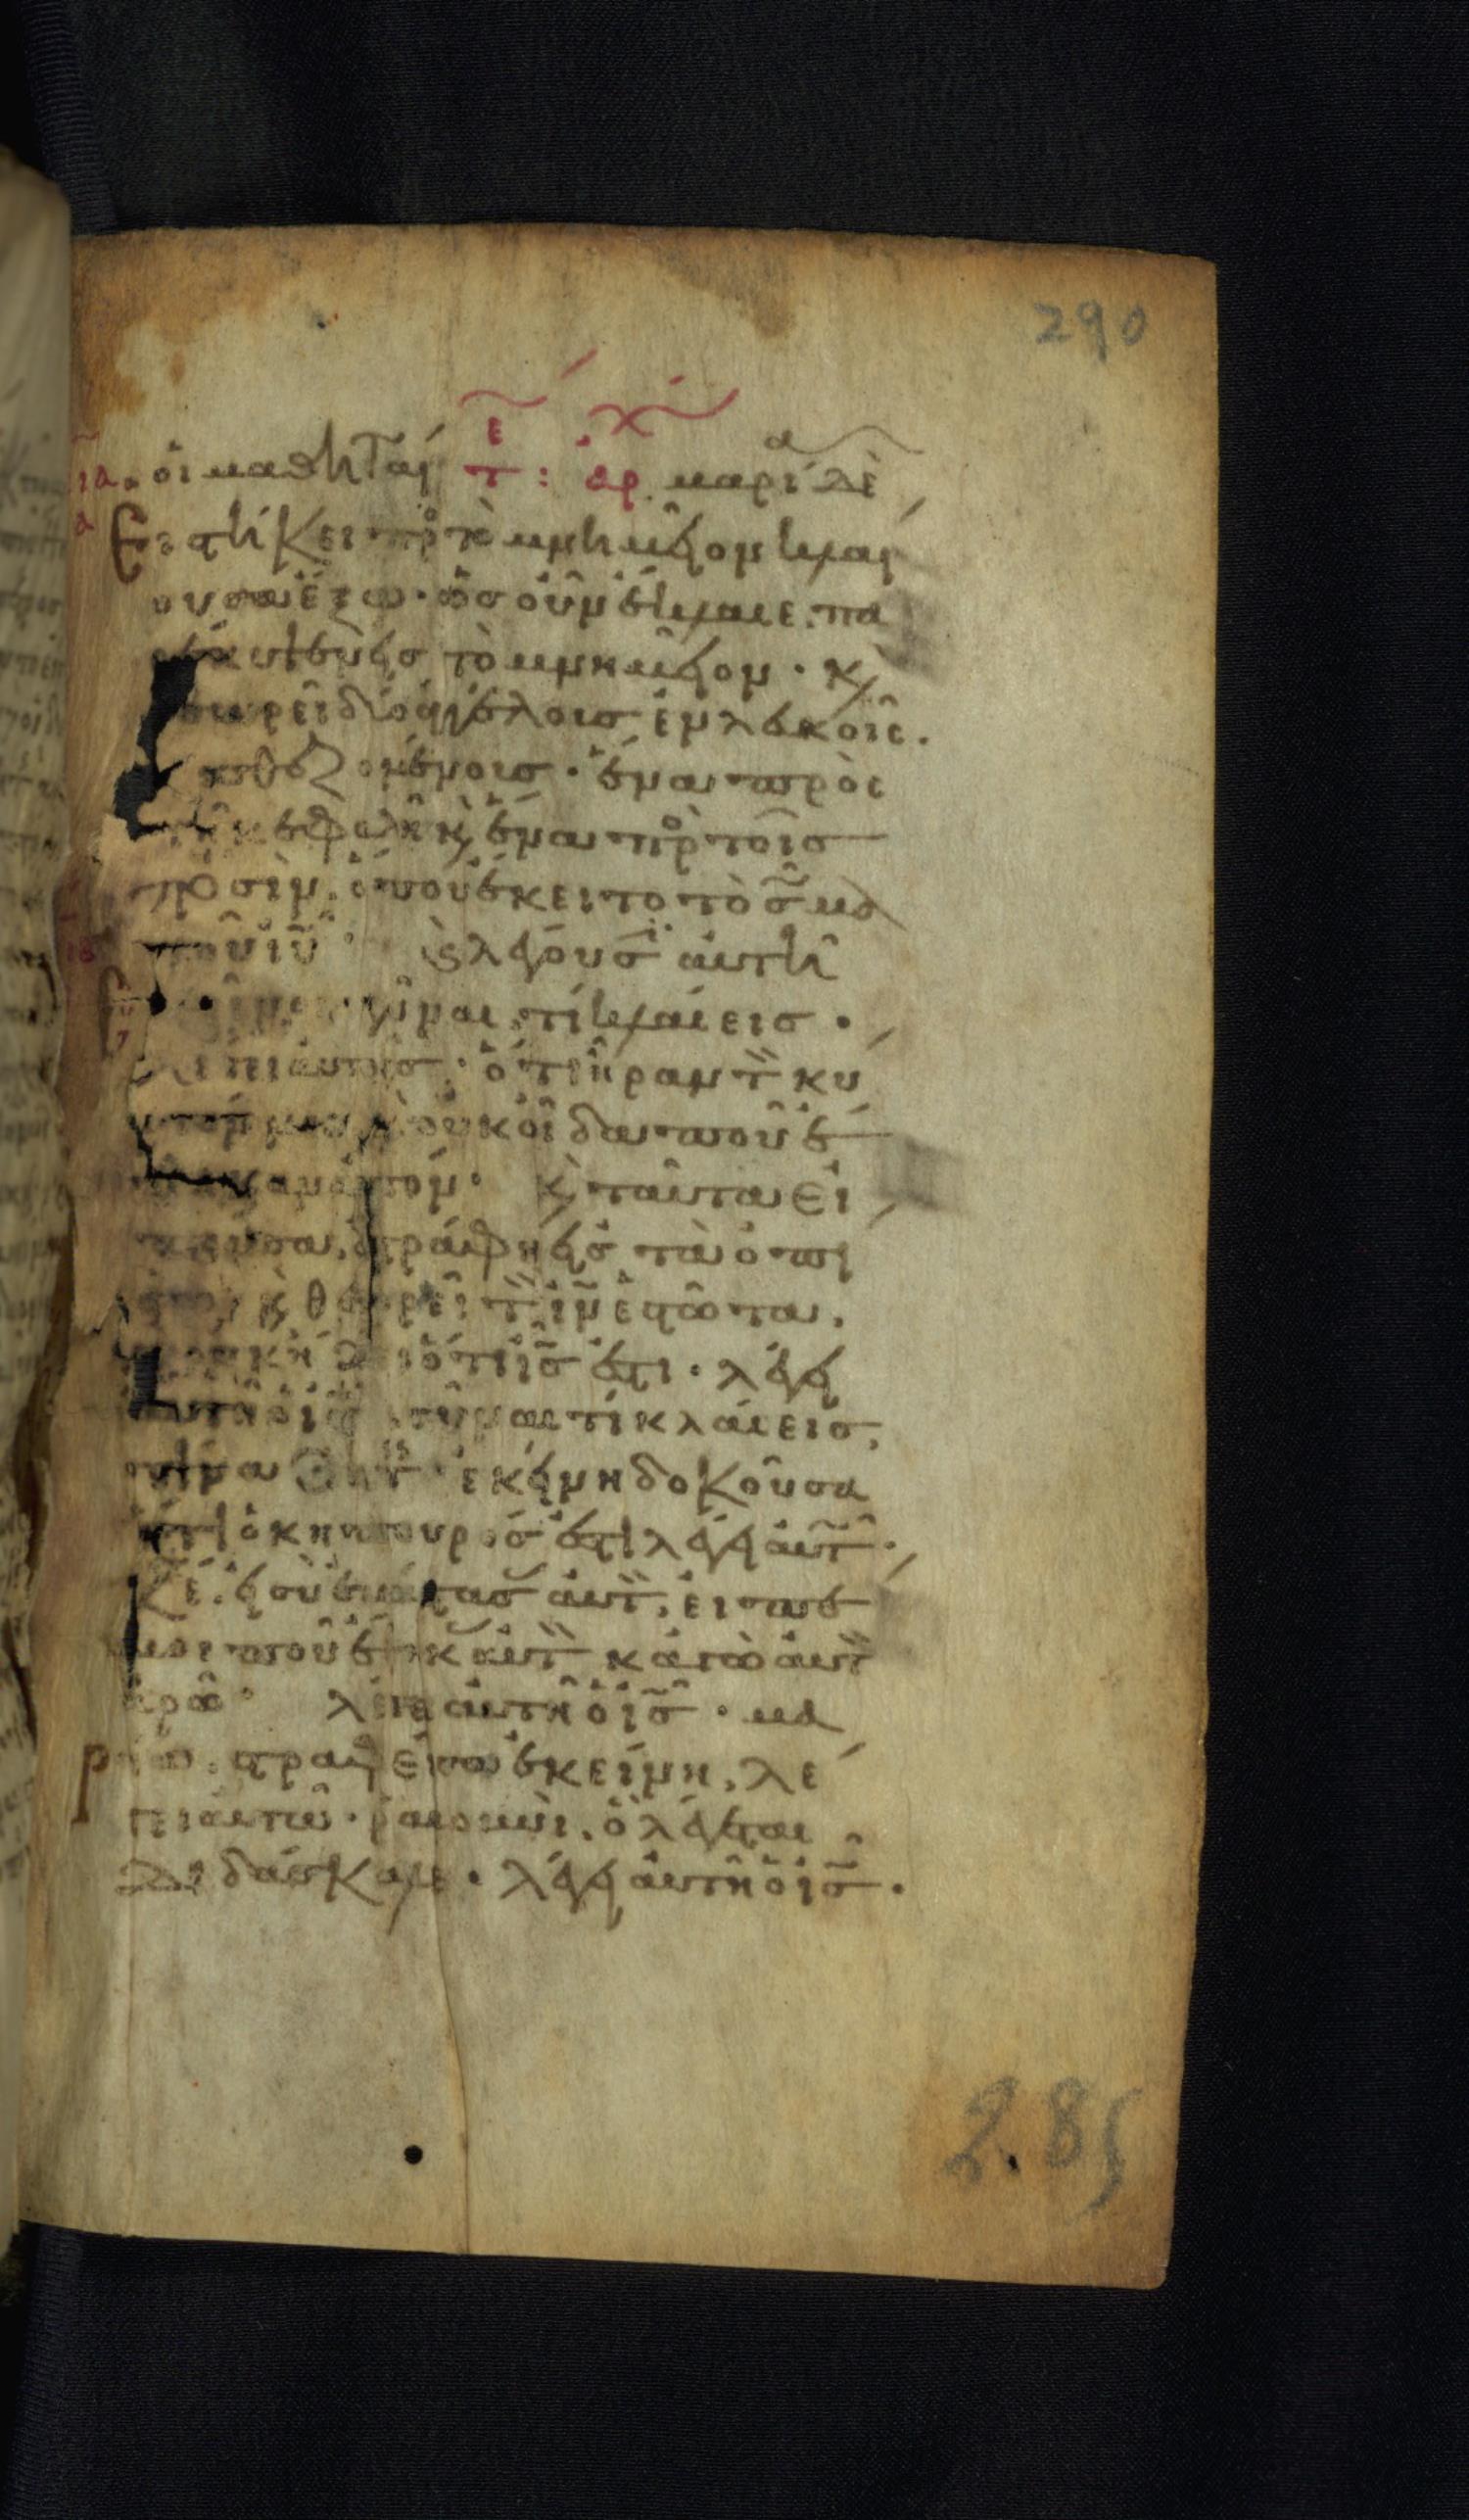 290
ε χ
οἱ μαθηταί τ : αρ μαρία δὲ
Εἱστήκει πρ τὸ μνημεῖον κλαί
ουσα ἔξω. ὡς οὖν ἔκλαιε, πα
ρέκυψεν εἰς τὸ μνημεῖον. κ
θεωρεῖ δύο ἀγγέλους ἐν λευκοῖς.
καθεζομένους. ἕνα πρὸς
τῆ κεφαλῆ κ ἕνα πρ τοῖς
ποσὶν, ὅπου ἔκειτο τὸ σμα
τοῦ ιυ λέγουσ αὐτῆ
ἐκεῖνοι. γύναι, τί κλαίεις.
λέγει αὐτοῖς. ὅτι ἦραν τ κυ
κ οὐκ οἶδα ποῦ ἔ
θηκαν αὐτόν. κ ταῦτα εἰ
ποῦσα, ἐστράφη εἰς τὰ ὀπί
σω, κ θεωρεῖ τ ιν ἑστῶτα,
κ οὐκ ἤδει ὅτι ις ἐστι. λέγει
αὐτῆ ὁ ις, γύναι τί κλαίεις,
τίνα ζητ ἐκείνη δοκοῦσα
ὅτι ὁ κηπουρός ἐστι λέγει αὐτ.
κε. εἰ σὺ ἐβάστασ αὐτ, εἰπέ
μοι ποῦ ἔθηκ αὐτ κἀγὼ αὐτ
ἀρῶ λέγει αὐτῆ ὁ ις. μα
ρία. στραφεῖσα ἐκείνη, λέ
γει αὐτῶ. ῥαβουνὶ, ὃ λέγεται
διδάσκαλε. λέγει αὐτῆ ὁ ις.
285